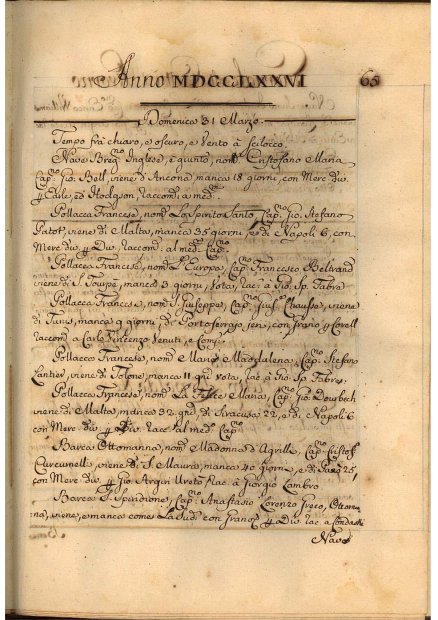 Anno MDCCLXXVI 65
Domenica 31 Marzo.
Tempo frà chiaro, e oscuro, e Vento à scilocco.
Nave Breg.no Inglese, è giunto, nom.o Cristofano Maria
Cap.no Gio. Bell, viene d'Ancona manca 18 giorni, con Merc div.
Earle, ed Hodgson, raccom. a med.
Pollacca Francese, nom. Lo Spirito Santo, Cap.no Gio. Stefano
Patot, viene di Malta, manca 35 giorni, e di Napoli 6, con
Merc div. p Div. Raccom. al med. Cap.no
Pollacca Francese, nom. L'Europa, Cap.no Francesco Beltrand
viene di S. Toupé, manca 3 giorni, Vota, rac. a Gio. Sp. Fabre
Pollacca Francese, nom. S. Giuseppe, Cap.no Gius. Chausse, viene
di Tunis, manca 9 giorni, di Porto Feraio jeri, con grano p Corell
raccom. a Carlo Vincenzo Venuti, e Comp.
Pollacca Francese, nom. Maria Maddalena, Cap.no Stefano
Lantier, viene di Tolone, manca 11 gni vota, rac. à Gio. Sp. Fabre.
Pollacca Francese, nom. La Felice Maria, Cap.no Gio.
viene di Malta, manca 32 gni. di Siracusa 22, e di Napoli 6
con Merc div. p Div. racc. al med. Cap.no
Barca Ottomanna, nom. Madonna d'Agrilli, Cap.no Cristof.
viene di S. Maura, manca 40 giorni, e di 25,
con Merc div. p Gio. Argiri rac. à Giorgio Lambro
Barca S. Spiridione, Cap.no Anastasio Lorenzo Greco, Ottoman
na, viene, e manca come La Sud. con Grano p Div. rac. a
Nave